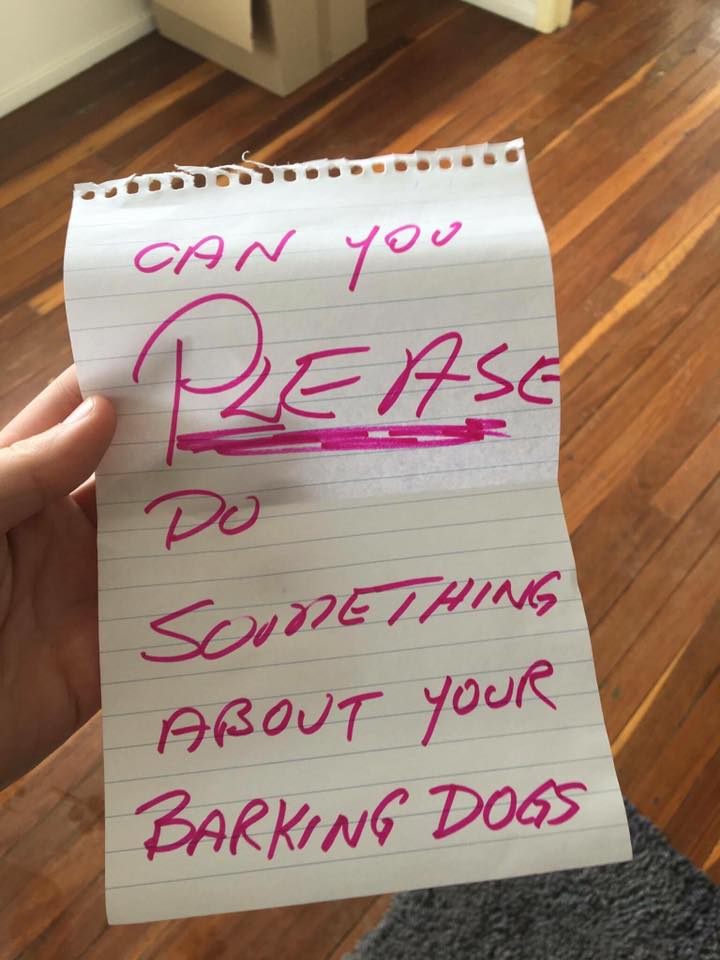 CAN YOU
PLEASE
DO
SOMETHING
ABOUT YOUR
BARKING DOGS